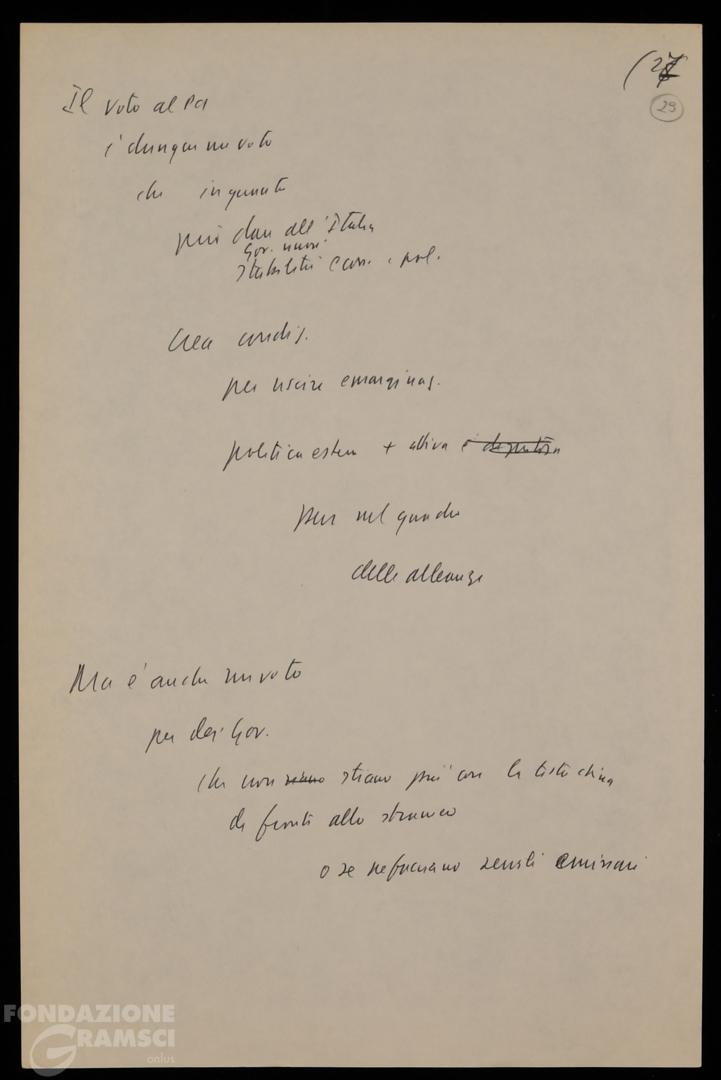 (27
29
Il voto al PCI
è dunque un voto
che in quanto
può dare all'Italia
Gov. nuovi
stabilità econ. e pol.
Crea condiz.
per uscire emarginaz.
politica estera + attiva e
pur nel quadro
delle alleanze
Ma è anche un voto
per dei Gov.
che non siano stiano più con la testa china
di fronte allo straniero
o se ne facciano zelanti emissari
FONDAZIONE
GRAMSCI
onlus